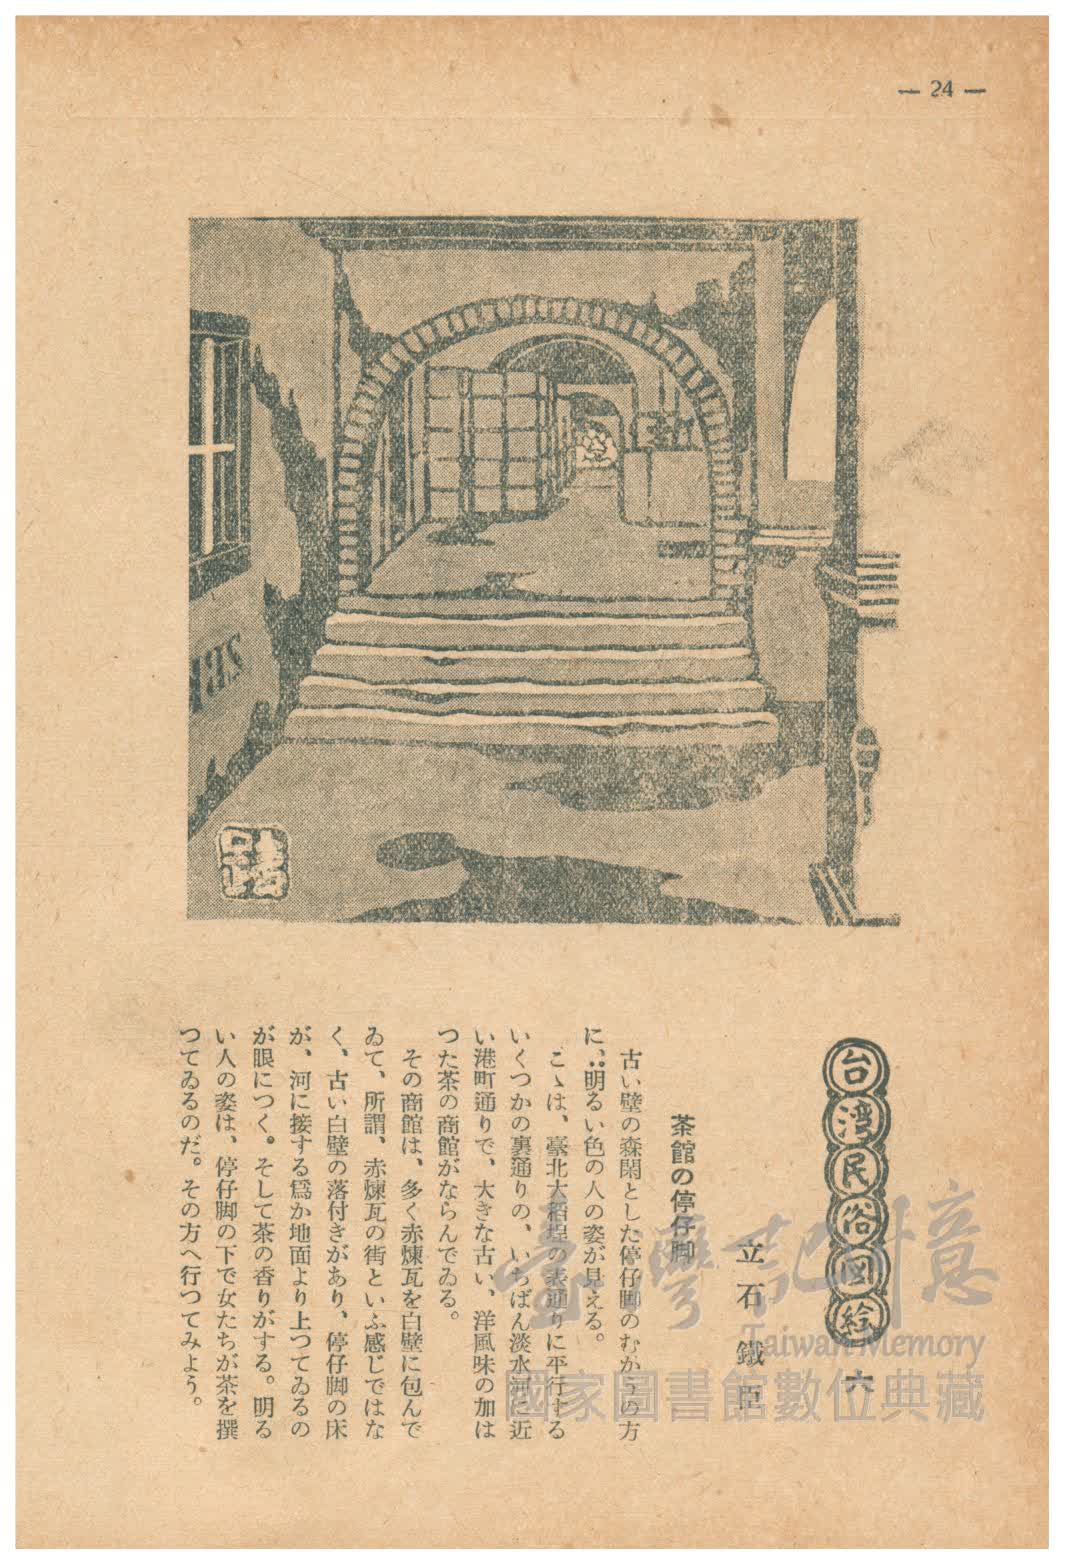 — 24 —
台湾民俗図絵 六
立石 鐵臣
茶館の停仔脚
古い壁の森閑とした停仔脚のむかうの方
に、明るい色の人の姿が見える。
こゝは、臺北大稻埕の表通りに平行する
いくつかの裏通りの、いちばん淡水河に近
い港町通りで、大きな古い、洋風味の加は
つた茶の商館がならんでゐる。
その商館は、多く赤煉瓦を白壁に包んで
ゐて、所謂、赤煉瓦の街といふ感じではな
く、古い白壁の落付きがあり、停仔脚の床
が、河に接する爲か地面より上つてゐるの
が眼につく。そして茶の香りがする。明る
い人の姿は、停仔脚の下で女たちが茶を撰
つてゐるのだ。その方へ行つてみよう。
臺灣記憶
Taiwan Memory
國家圖書館數位典藏